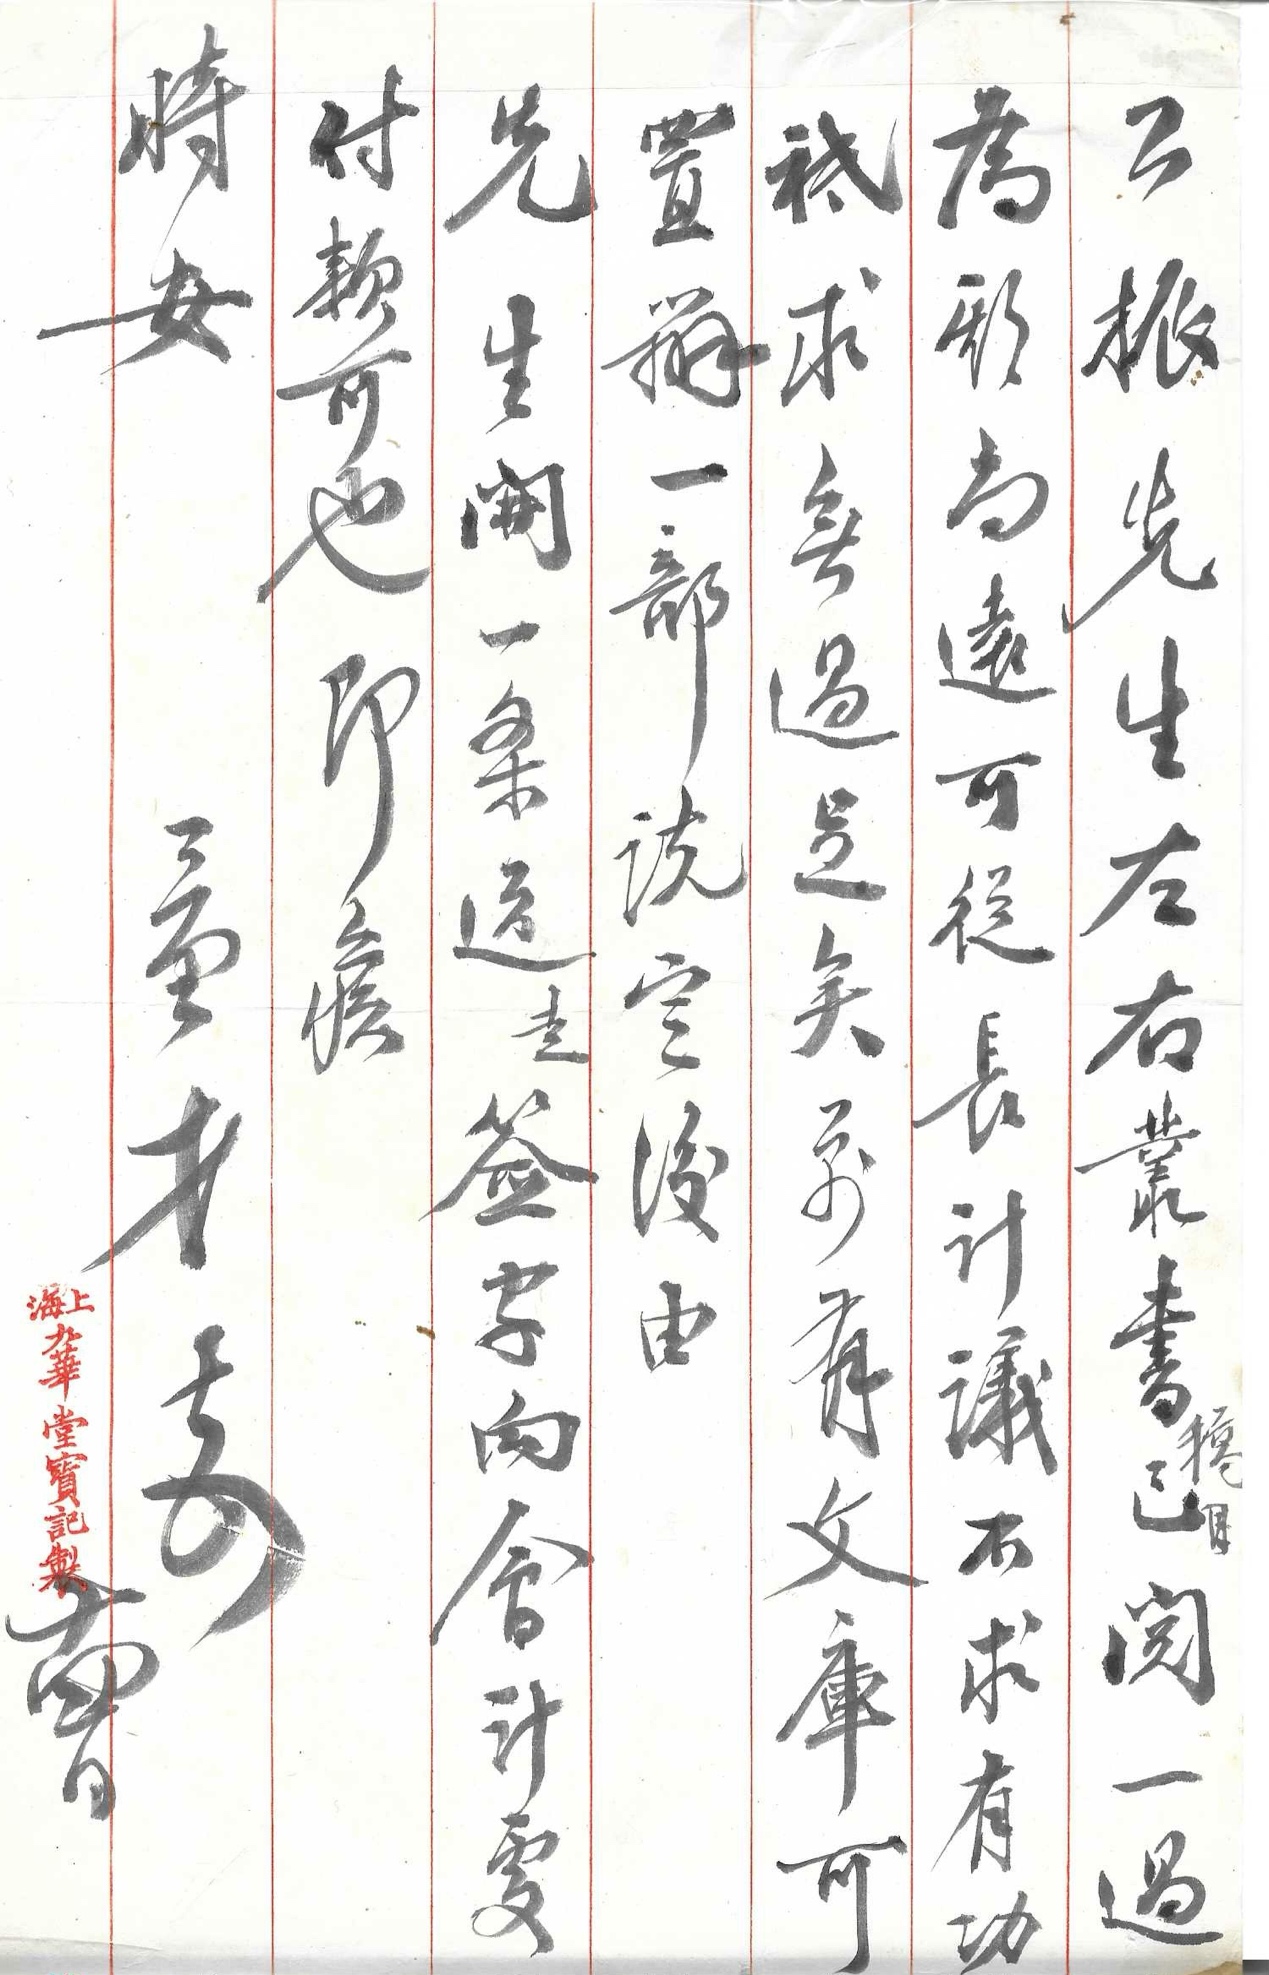 公振先生左右叢書擬目已閱一過
為期尚遠可從長計議不求有功
祗求無過足矣萬有文庫可
置辦一部說定後由
先生開一条送去簽字向會計處
付款可也即候
時安
弟
十四日
上海九華堂寶記製